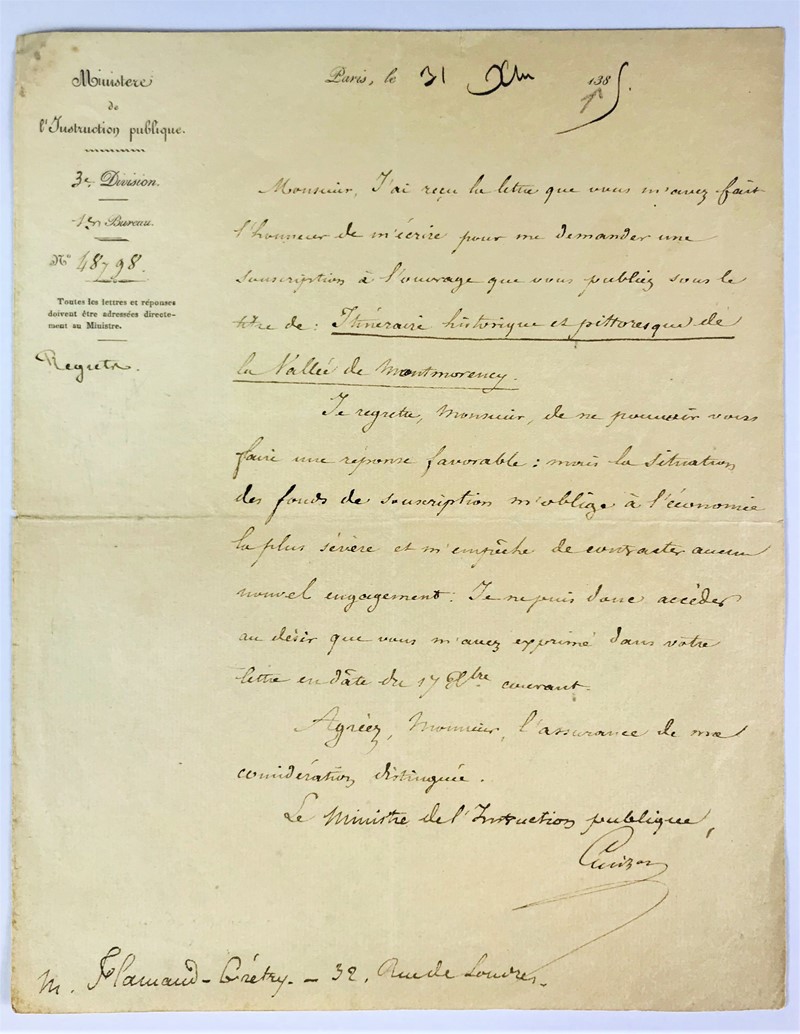 Ministère
de
l'Instruction publique.
3e Division.
1er Bureau.
N° 48798.
Toutes les lettres et réponses
doivent être adressées directe-
ment au Ministre.
Regrets.
Paris, le 31 Xbre 1835.
Monsieur, J'ai reçu la lettre que vous m'avez fait
l'honneur de m'écrire pour me demander une
souscription à l'ouvrage que vous publiez sous le
titre de : Itinéraire historique et pittoresque de
la Vallée de Montmorency.
Je regrette, Monsieur, de ne pouvoir vous
faire une réponse favorable : mais la situation
des fonds de souscription m'oblige à l'économie
la plus sévère et m'empêche de contracter aucun
nouvel engagement. Je ne puis donc accéder
au désir que vous m'avez exprimé dans votre
lettre en date du 17 Xbre courant.
Agréez, Monsieur, l'assurance de ma
considération distinguée.
Le Ministre de l'Instruction publique,
Guizot
M. Flamand-Grétry. - 32, Rue de Londres.